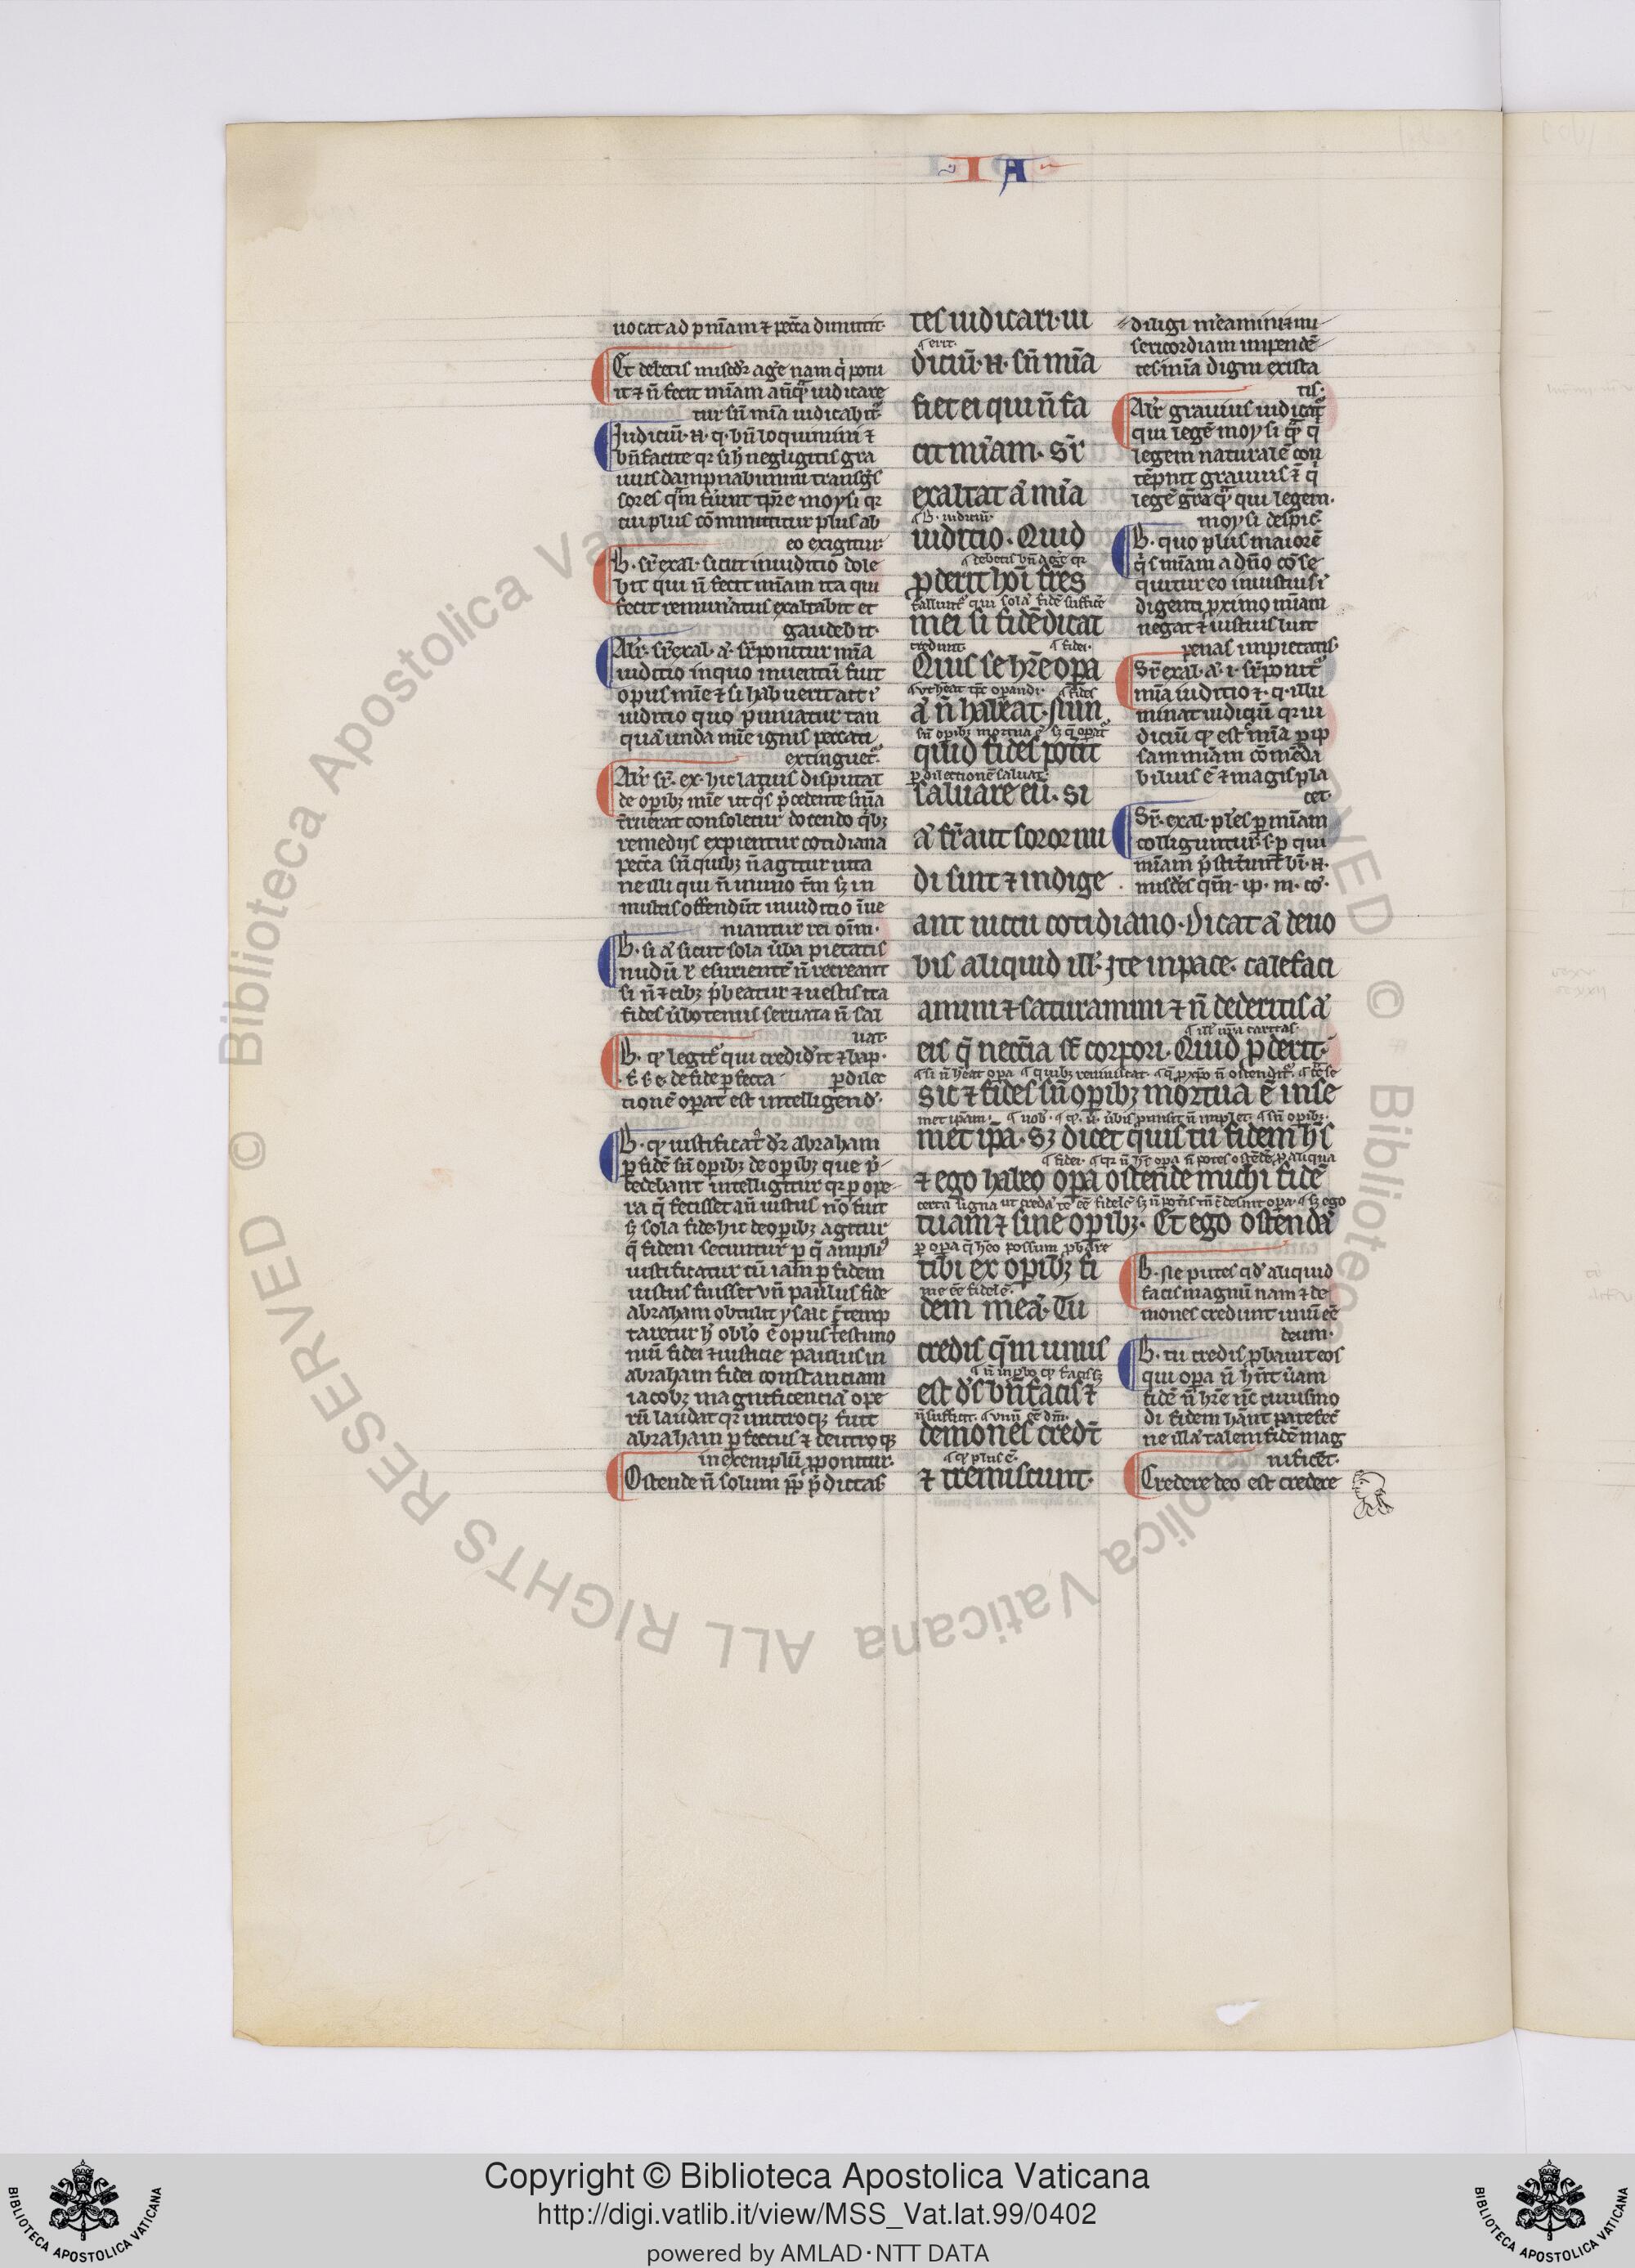 IA
uocat ad pniam ⁊ pecca dimittit·
Et debetis misc̄dr̄ agē nam q̇ potu
it ⁊ n̄ fecit mīam an̄q̄ iudicare
tur sn̄ mīa iudicabit᷑
Judiciū·n̄·q· bn̄ loquimini ⁊
bn̄ facite qr si h̄ negligitis gra
uius dampnabimini transḡs
sores qm̄ fuerunt moysi qr
cui plus cōmittitur plus ab
eo exigitur·
B· sr̄ exal· sicut in iuditio dole
bit qui n̄ fecit mīam ita qui
fecit remun̄atus exaltabit et
gaudebit·
Alr̄· sr̄ exal· a̾· sr̄ponitur mīa
iuditio in quo inuentū fuit
opus mīe ⁊ si habuerit
iuditio quo priuatur tan
quā unda mīe ignis peccati
extinguet᷑·
Alr̄ sr̄· ex· hic latius disputat
de opib; mīe ut q̊s p̄cedente sn̄ia
t̄ruerat consoletur docendo qb;
remedijs expientur cotidiana
pecc̄a sn̄ quib; n̄ agitur uita
ne illi qui n̄ in uno tm̄ s; in
multis offendūt in iuditio īue
niantur rei oīm·
B· si a̾ sicut sola ūba pietatis
nudū ł esurientē n̄ recreant
si n̄ ⁊ cib; p̄beatur ⁊ uestis ita
fides ūbotenus seruata n̄ sal
uat·
B· q̄ legit᷑ qui credid̾it ⁊ bap·
f· s· e· de fide pfecta p dilec
tionē opat᷑ est intelligend̾·
B· q̄ iustificat᷑ dr̄ abraham
p fidē sn̄ opib; de opib; que p̄
cedebant intelligitur qr p ope
ra q̄ fecisset an̄ iustus nō fuit
s; sola fide hic de opib; agitur
q̄ fidem secuntur p q̄ ampli᷒
iustificatur cū iam p fidem
iustus fuisset vn̄ paulus fide
abraham obtulit ysaac c̄ temp
taretur h̄ oblō ē opus testimo
niū fidei ⁊ iusticie paulus in
abraham fidei constanciam
iacob; magnificenciā ope
rū laudat qr in utroq; fuit
abraham pfectus ⁊ de utroq;
in exemplū pponitur·
Ostende n̄ solum pp̄ p̄dictas
tes iudicari· iu
erit·
diciū·n̄· sn̄ mīa
fiet ei qui n̄ fa
cit mīam· Sr̄
exaltat a̾ mīa
B· iudiciū·
iuditio· Quid
debetis bn̄ agē qr
pderit hoī frēs
fallunt᷑ qui solā fidē sufficē
mei si fidē dicat
credunt· fidei·
Quis se hr̄e opa
ut heat operandi· fides
a̾ n̄ habeat· Nun
sn̄ opib; mortua ē s; q̄ opat᷑
quid fides potit
p dilectionē saluat·
saluare eū· Si
a̾ fr̄ aut soror nu
di sint ⁊ indige
ant uictu cotidiano· Dicat a̾ de uo
bis aliquid ill̾· Jte in pace· calefaci
amini ⁊ saturamini ⁊ n̄ dederitis a̾
ill̾ ur̄a caritas·
eis q̄ neccīa st̄ corpori· Quid pderit·
si n̄ heat opa quib; reuiuiscat· q̄ pxīo n̄ ostendit᷑·
Sic ⁊ fides sn̄ opib; mortua ē in se
met ipam· uob̾· ūbis pmisit n̄ implet· sn̄ opib;·
met ipā· S; dicet quis tu fidem hs̄
fidei· qr n̄ hē opa n̄ potes ostēdē p aliqua
⁊ ego habeo opa ostende michi fidē
certa signa ut credā te eē fidelē s; n̄ desint opa· s; ego
tuam ⁊ sine opib;· Et ego ostendā
p opa q̄ heo possum pbare
tibi ex opib; fi
me eē fidelē·
dem meā· Tu
credis qm̄ unus
est d̄s bn̄ facis ⁊
n̄ sufficit· unū eē dm̄·
demones credūt
q̄ plus ē·
⁊ tremiscunt·
diligi mēamini ⁊ mi
sericordiam impendē
tes mīa digni exista
tis·
Alr̄ grauius iudicat᷑
qui legē moysi q̄ q̇
legem naturalē con
tēpnit grauius ē q̇
legē gr̄ā q̄ qui legem
moysi despic̄·
B· quo plus maiorē
q̊s mīam a dn̄o cōse
quitur eo iniustius ī
digenti pximo mīam
negat ⁊ iustius luit
penas impietatis·
Sr̄ exal· a̾· i· sr̄ponit᷑
mīa iuditio ⁊· q· illu
minat iudiciū qr iu
diciū q̄ est mīa p ip
sam mīam cōmēda
bilius ē ⁊ magis pla
cet·
Sr̄· exal· ples p mīam
colliguntur· s· p qui
mīam p̄stiterunt bī·n̄·
misc̄des qm̄· ip· m· co·
B· Ne putes qd̾ aliquid
facis magnū nam ⁊ de
mones credunt unū eē
deum·
B· tu credis pbauit eos
qui opa n̄ hn̄t ūam
fidē n̄ hr̄e nc̄ cuiusmo
di fidem hānt patefec̄
ne illā talem fidē mag
nificēt·
Credere deo est credere
© Biblioteca Apostolica Vaticana ALL RIGHTS RESERVED
Copyright © Biblioteca Apostolica Vaticana
http://digi.vatlib.it/view/MSS_Vat.lat.99/0402
powered by AMLAD·NTT DATA
BIBLIOTECA APOSTOLICA VATICANA
BIBLIOTECA APOSTOLICA VATICANA